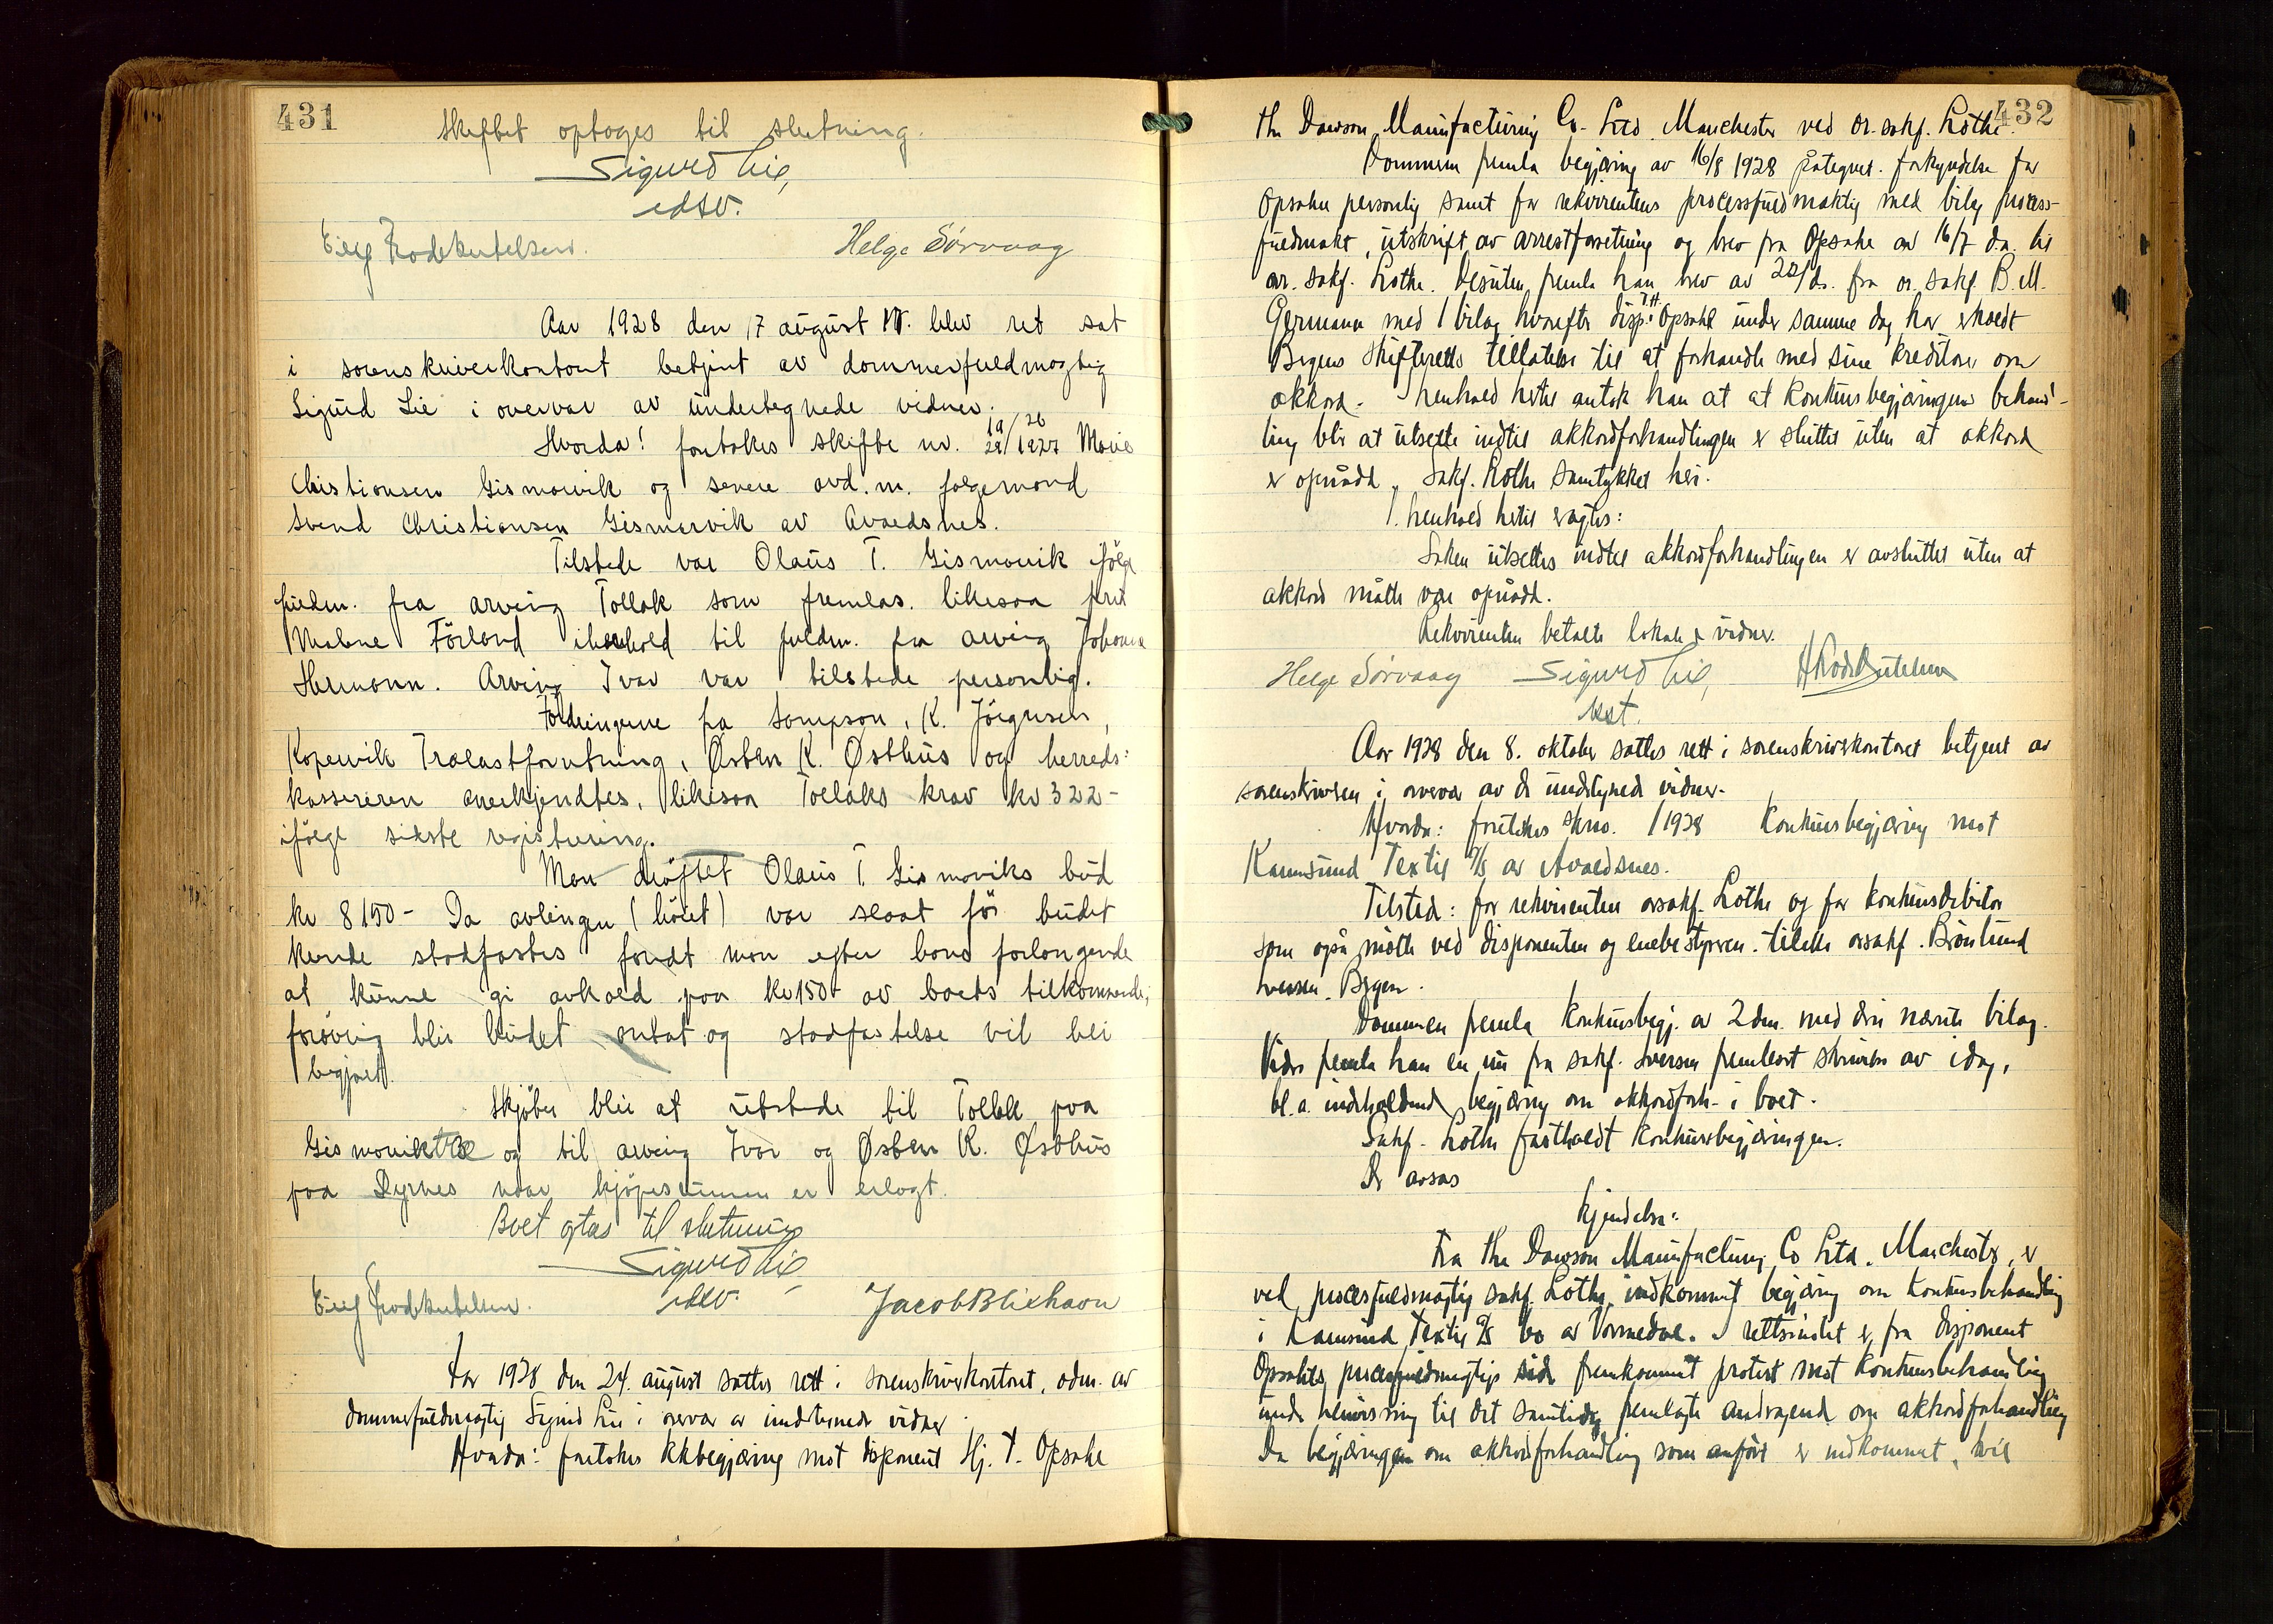 431
Skiftet optages til slutning.
Sigurd Lie,
edsv.
Helge Sörvaag
Aar 1928 den 17 august blev ret sat
i sorenskriverkontoret betjent av dommerfuldmægtig
Sigurd Lie i overvær av undertegnede vidner.
Hvorda! foretokes skifte nr. 1927 Marie
Christiansen Gismarvik og senere avd. m. folgemand
Svend Christiansen Gismarvik av Avaldsnes.
Tilstede var Olaus T. Gismarvik ifölge
fuldm. fra arving Tollak som fremlas. likesaa
Malene Förland ihenhold til fuldm. fra arving Johan
Hermann. Arving Ivar var tilstede personlig.
Fordringerne fra Sompson, K. Jörgensen,
Kopervik Trælastforretning, Østen K. Østhus og herreds-
kassereren anerkjendtes, likesaa Tollaks krav kr 322-
ifölge sidste registrering.
Man dröftet Olaus T. Gismarviks bud
kr 8150- Da avlingen (höiet) var slaat för budet
kunde stadfæstes fandt man efter hans forlangende
at kunne gi avkald paa kr 150- av boets tilkommende,
forövrig blir budet antat og stadfæstelse vil bli
begjært.
Skjöte blir at utstede til Tollak paa
Gismarvik og til arving Ivar og Østen K. Østhus
paa Dyrnes naar kjöpesummen er erlagt.
Boet optas til slutning
Sigurd Lie
edsv.
Jacob Blikhavn
Aar 1928 den 24. august sattes rett i sorenskriverkontoret, adm. av
dommerfuldmægtig Sigurd Lie i overvær av undertegnede vidner.
Hvorda: foretokes kkbegjæring mot disponent Hj. T. Opsahl
432
The Dawson Manufacturing Co. Ltd. Manchester ved or.sakf. Lothe.
Dommeren fremla begjæring av 16/8 1928 påtegnet forkyndelse for
Opsahl personlig samt for rekvirentens processfuldmæktig med bilag process-
fuldmakt, utskrift av arrestforretning og brev fra Opsahl av 16/7 d.a. til
or. sakf. Lothe. Desuten fremla han brev av 22/ds. fra or. sakf. B. M.
Germann med 1 bilag hvorefter disp. Opsahl under samme dag har erholdt
Bergens skifteretts tillatelse til at forhandle med sine kreditorer om
akkord. I henhold hertil antok han at at konkursbegjæringens behand-
ling blir at utsette indtil akkordforhandlingen er sluttet uten at akkord
er opnådd. Sakf. Lothe samtykket heri.
I henhold hertil vagtes:
Saken utsettes indtil akkordforhandlingen er avsluttet uten at
akkord måtte være opnådd.
Rekvirenten betalte lokale & vidner.
Helge Sörvaag Sigurd Lie,
kst.
Aar 1928 den 8. oktober sattes rett i sorenskriverkontoret betjent av
sorenskriveren i overvær av de undertegnede vidner.
Hvorda: foretokes skno. /1928 Konkursbegjæring mot
Karmsund Textil A/S av Avaldsnes.
Tilstede: for rekvirenten orsakf. Lothe og for konkursdebitor
som også mötte ved disponenten og enebestyreren. tillike orsakf. Brönlund
Iversen. Bergen.
Dommeren fremla konkursbegj. av 2 dm. med deri nævnte bilag.
Videre fremla han en nu fra sakf. Iversen fremlevert skrivelse av idag,
bl.a. indeholdende begjæring om akkordforh. i boet.
Sakf. Lothe fastholdt konkursbegjæringen.
Der avsas
Kjendelse:
Fra The Dawson Manufacturing Co Ltd. Manchester, er
ved processfuldmægtig sakf. Lothe indkommet begjæring om konkursbehandling
i Karmsund Textil A/S bo av Vormedal. I rettsmötet er fra disponent
Opsahls processfuldmægtigs side fremkommet protest mot konkursbehandling
under henvisning til det samtidig fremlagte andragende om akkordforhandling
Da begjæringen om akkordforhandling som anfört er indkommet, vil